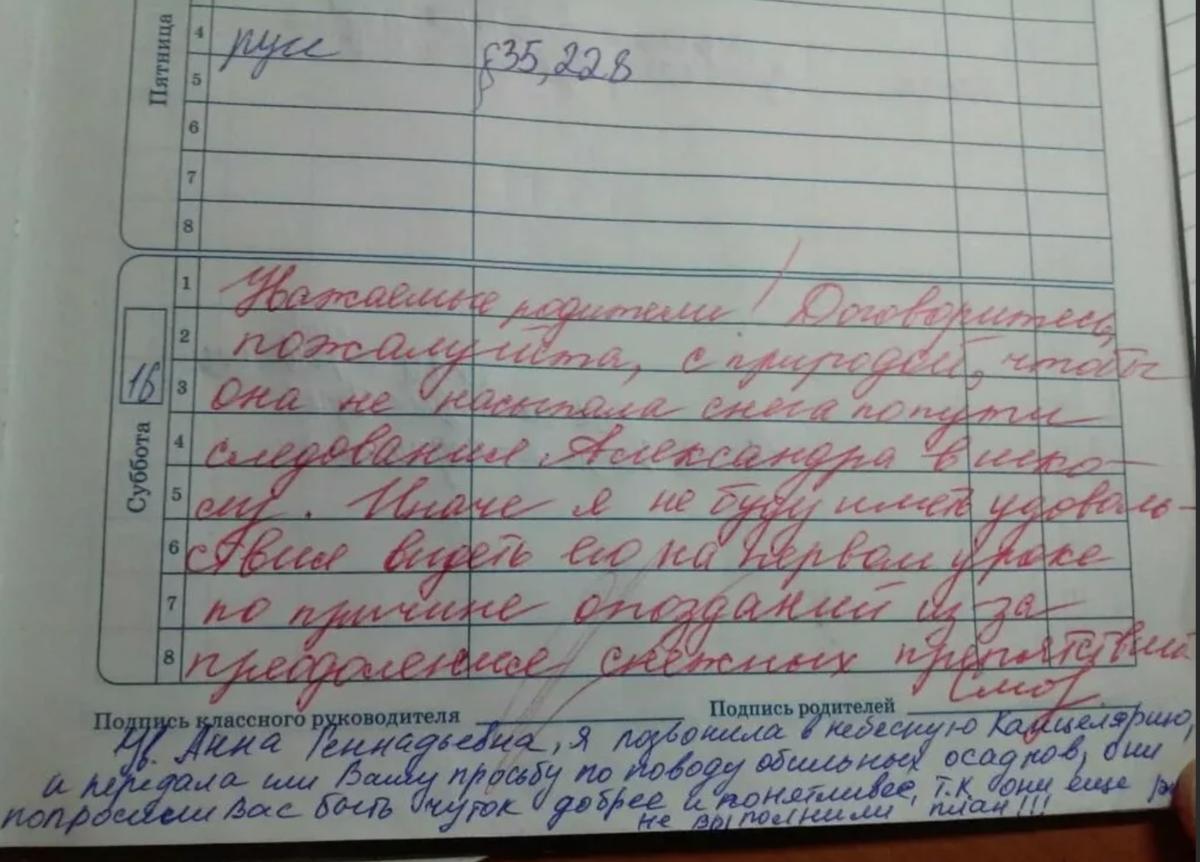 Пятница
4 русс §35,228
5
6
7
8
Суббота
16
1 Уважаемые родители! Договоритесь,
2 пожалуйста, с природой, чтобы
3 она не насыпала снега по пути
4 следования Александра в шко-
5 лу. Иначе я не буду иметь удоволь-
6 ствия видеть его на первом уроке
7 по причине опозданий из-за
8 преодоление снежных препятствий
Подпись классного руководителя Подпись родителей
Ув. Анна Геннадьевна, я позвонила в небесную Канцелярию,
и передала им Вашу просьбу по поводу обильных осадков, они
попросили Вас быть чуток добрее и понятливее, т.к они еще
не выполнили план!!!